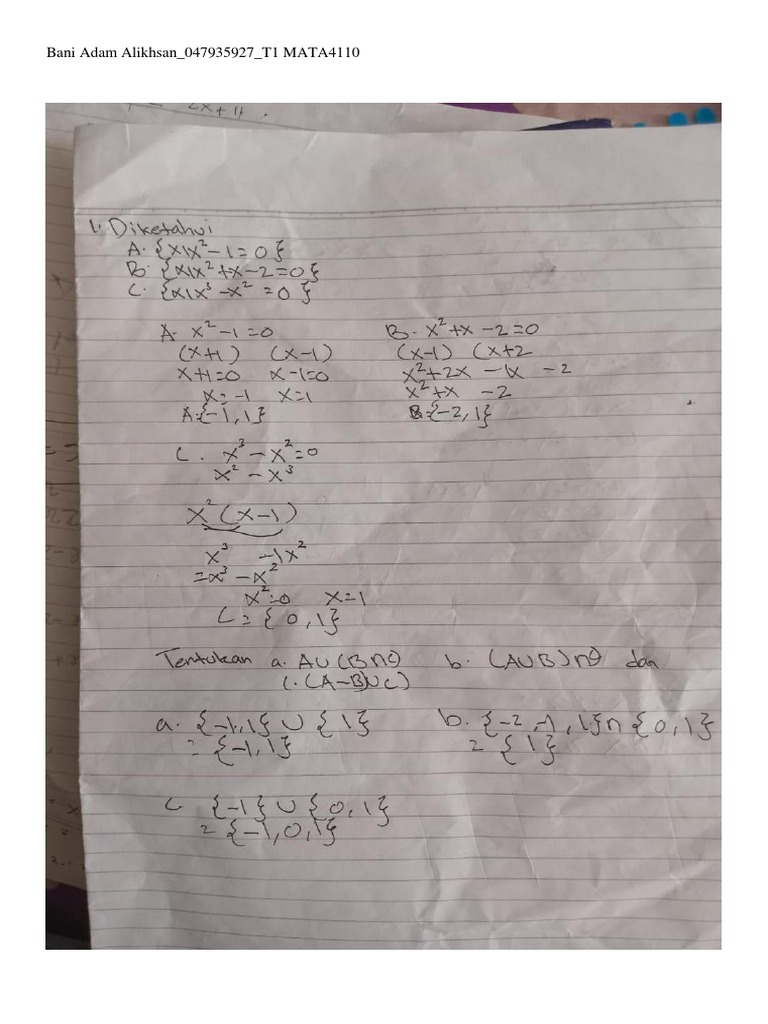 Bani Adam Alikhsan_047935927_T1 MATA4110
2x+11.
1. Diketahui
A. {x|x²-1=0}
B. {x|x²+x-2=0}
C. {x|x³-x²=0}
A. x²-1=0
(x+1) (x-1)
x+1=0 x-1=0
x=-1 x=1
A:{-1,1}
B. x²+x-2=0
(x-1) (x+2
x²+2x -1x -2
x²+x -2
B:{-2,1}
C. x³-x²=0
x²-x³
x²(x-1)
x³ -1x²
=x³-x²
x²=0 x=1
C={0,1}
Tentukan a. A∪(B∩C) b. (A∪B)∩C dan
c. (A-B)∪C)
a. {-1,1} ∪ {1}
= {-1,1}
b. {-2,-1,1}∩{0,1}
= {1}
c {-1} ∪ {0,1}
= {-1,0,1}